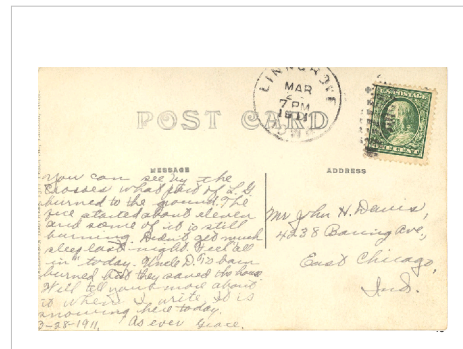 LINNGROVE
MAR
7 PM
1911
POST CARD
MESSAGE
ADDRESS
You can see by the
crosses what part of L.G.
burned to the ground. The
fire started about eleven
and some of it is still
burning. Didn't get much
sleep last night. Feel "all
in" today. Uncle D.'s barn
burned but they saved the house
Will tell you more about
it when I write. It is
snowing here today.
3-28-1911. As ever Grace.
Mr. John H. Dewis,
4238 Baring Ave.,
East Chicago,
Ind.